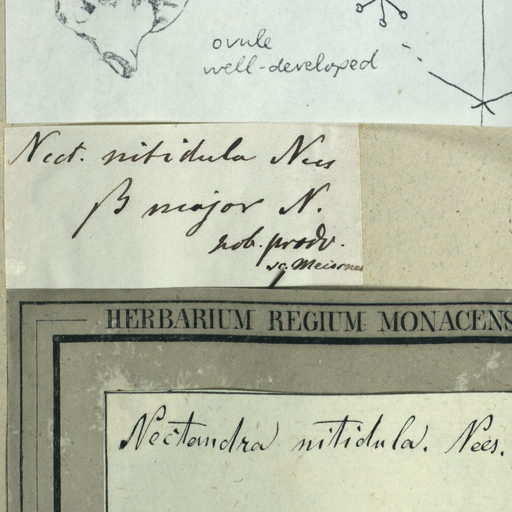 ovule
well-developed
Nect. nitidula Nees
β major N.
nob. prodr.
sc. Meisner
HERBARIUM REGIUM MONACENS
Nectandra nitidula. Nees.